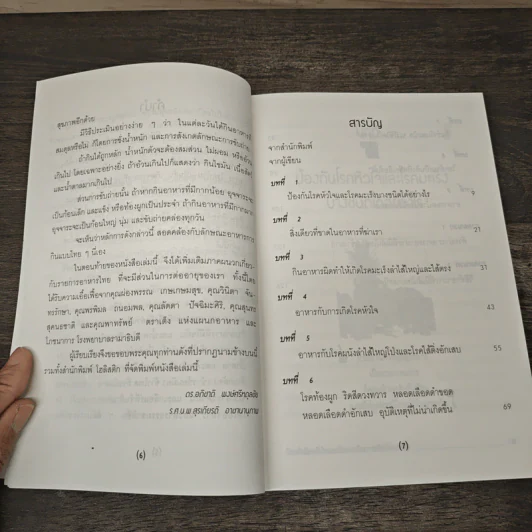 สุขภาพอีกด้วย
มีวิธีประเมินอย่างง่าย ๆ ว่า ในแต่ละวันได้กินอาหารที่
สมดุลหรือไม่ ก็โดยการชั่งน้ำหนัก และการสังเกตลักษณะการขับถ่าย
ถ้ากินได้ถูกหลัก น้ำหนักตัวจะต้องสมส่วน ไม่ผอม หรืออ้วน
เกินไป โดยเฉพาะอย่างยิ่ง ถ้าอ้วนเกินไปก็แสดงว่า กินไขมัน เนื้อสัตว์
และน้ำตาลมากเกินไป
ส่วนการขับถ่ายนั้น ถ้าหากกินอาหารที่มีกากน้อย อุจจาระจะ
เป็นก้อนเล็กและแข็ง หรือท้องผูกเป็นประจำ ถ้ากินอาหารที่มีกากมาก
อุจจาระจะเป็นก้อนใหญ่ นุ่ม และขับถ่ายคล่องทุกวัน
จะเห็นว่าหลักการดังกล่าวนี้ สอดคล้องกับลักษณะอาหารการ
กินแบบไทย ๆ นี่เอง
ในตอนท้ายของหนังสือเล่มนี้ จึงได้เพิ่มเติมภาคผนวกเกี่ยว
กับรายการอาหารไทย ที่จะมีส่วนในการต่ออายุของเรา ทั้งนี้โดย
ได้รับความเอื้อเฟื้อจากคุณผ่องพรรณ เกษเกษมสุข, คุณวินิตา จัน
ทรรักษา, คุณพรพิมล ถนอมพล, คุณลัดดา ปัจฉิมะศิริ, คุณสุนทร
สุคนธชาติ และคุณพาทรัพย์ ตราเต็ง แห่งแผนกอาหาร และ
โภชนาการ โรงพยาบาลรามาธิบดี
ผู้เรียบเรียงจึงขอขอบพระคุณทุกท่านดังที่ปรากฏนามข้างบนนี้
รวมทั้งสำนักพิมพ์ โฮลิสติก ที่จัดพิมพ์หนังสือเล่มนี้
ดร.อภิชาติ
ร.ศ.น.พ.สุรเกียรติ อาชานานุภาพ
(6)
สารบัญ
จากสำนักพิมพ์
จากผู้เขียน
บทที่
ป้องกันโรคหัวใจและโรคมะเร็งบางชนิดได้อย่างไร 9
บทที่ 2
สิ่งเดียวที่ขาดในอาหารที่ฆ่าเรา 21
บทที่ 3
กินอาหารผิดทำให้เกิดโรคมะเร็งลำไส้ใหญ่และไส้ตรง 31
บทที่ 4
อาหารกับการเกิดโรคหัวใจ 43
บทที่ 5
อาหารกับโรคผนังลำไส้ใหญ่โป่งและโรคไส้ติ่งอักเสบ 55
บทที่ 6
โรคท้องผูก ริดสีดวงทวาร หลอดเลือดดำขอด
หลอดเลือดดำอักเสบ อุบัติเหตุที่ไม่น่าเกิดขึ้น 69
(7)